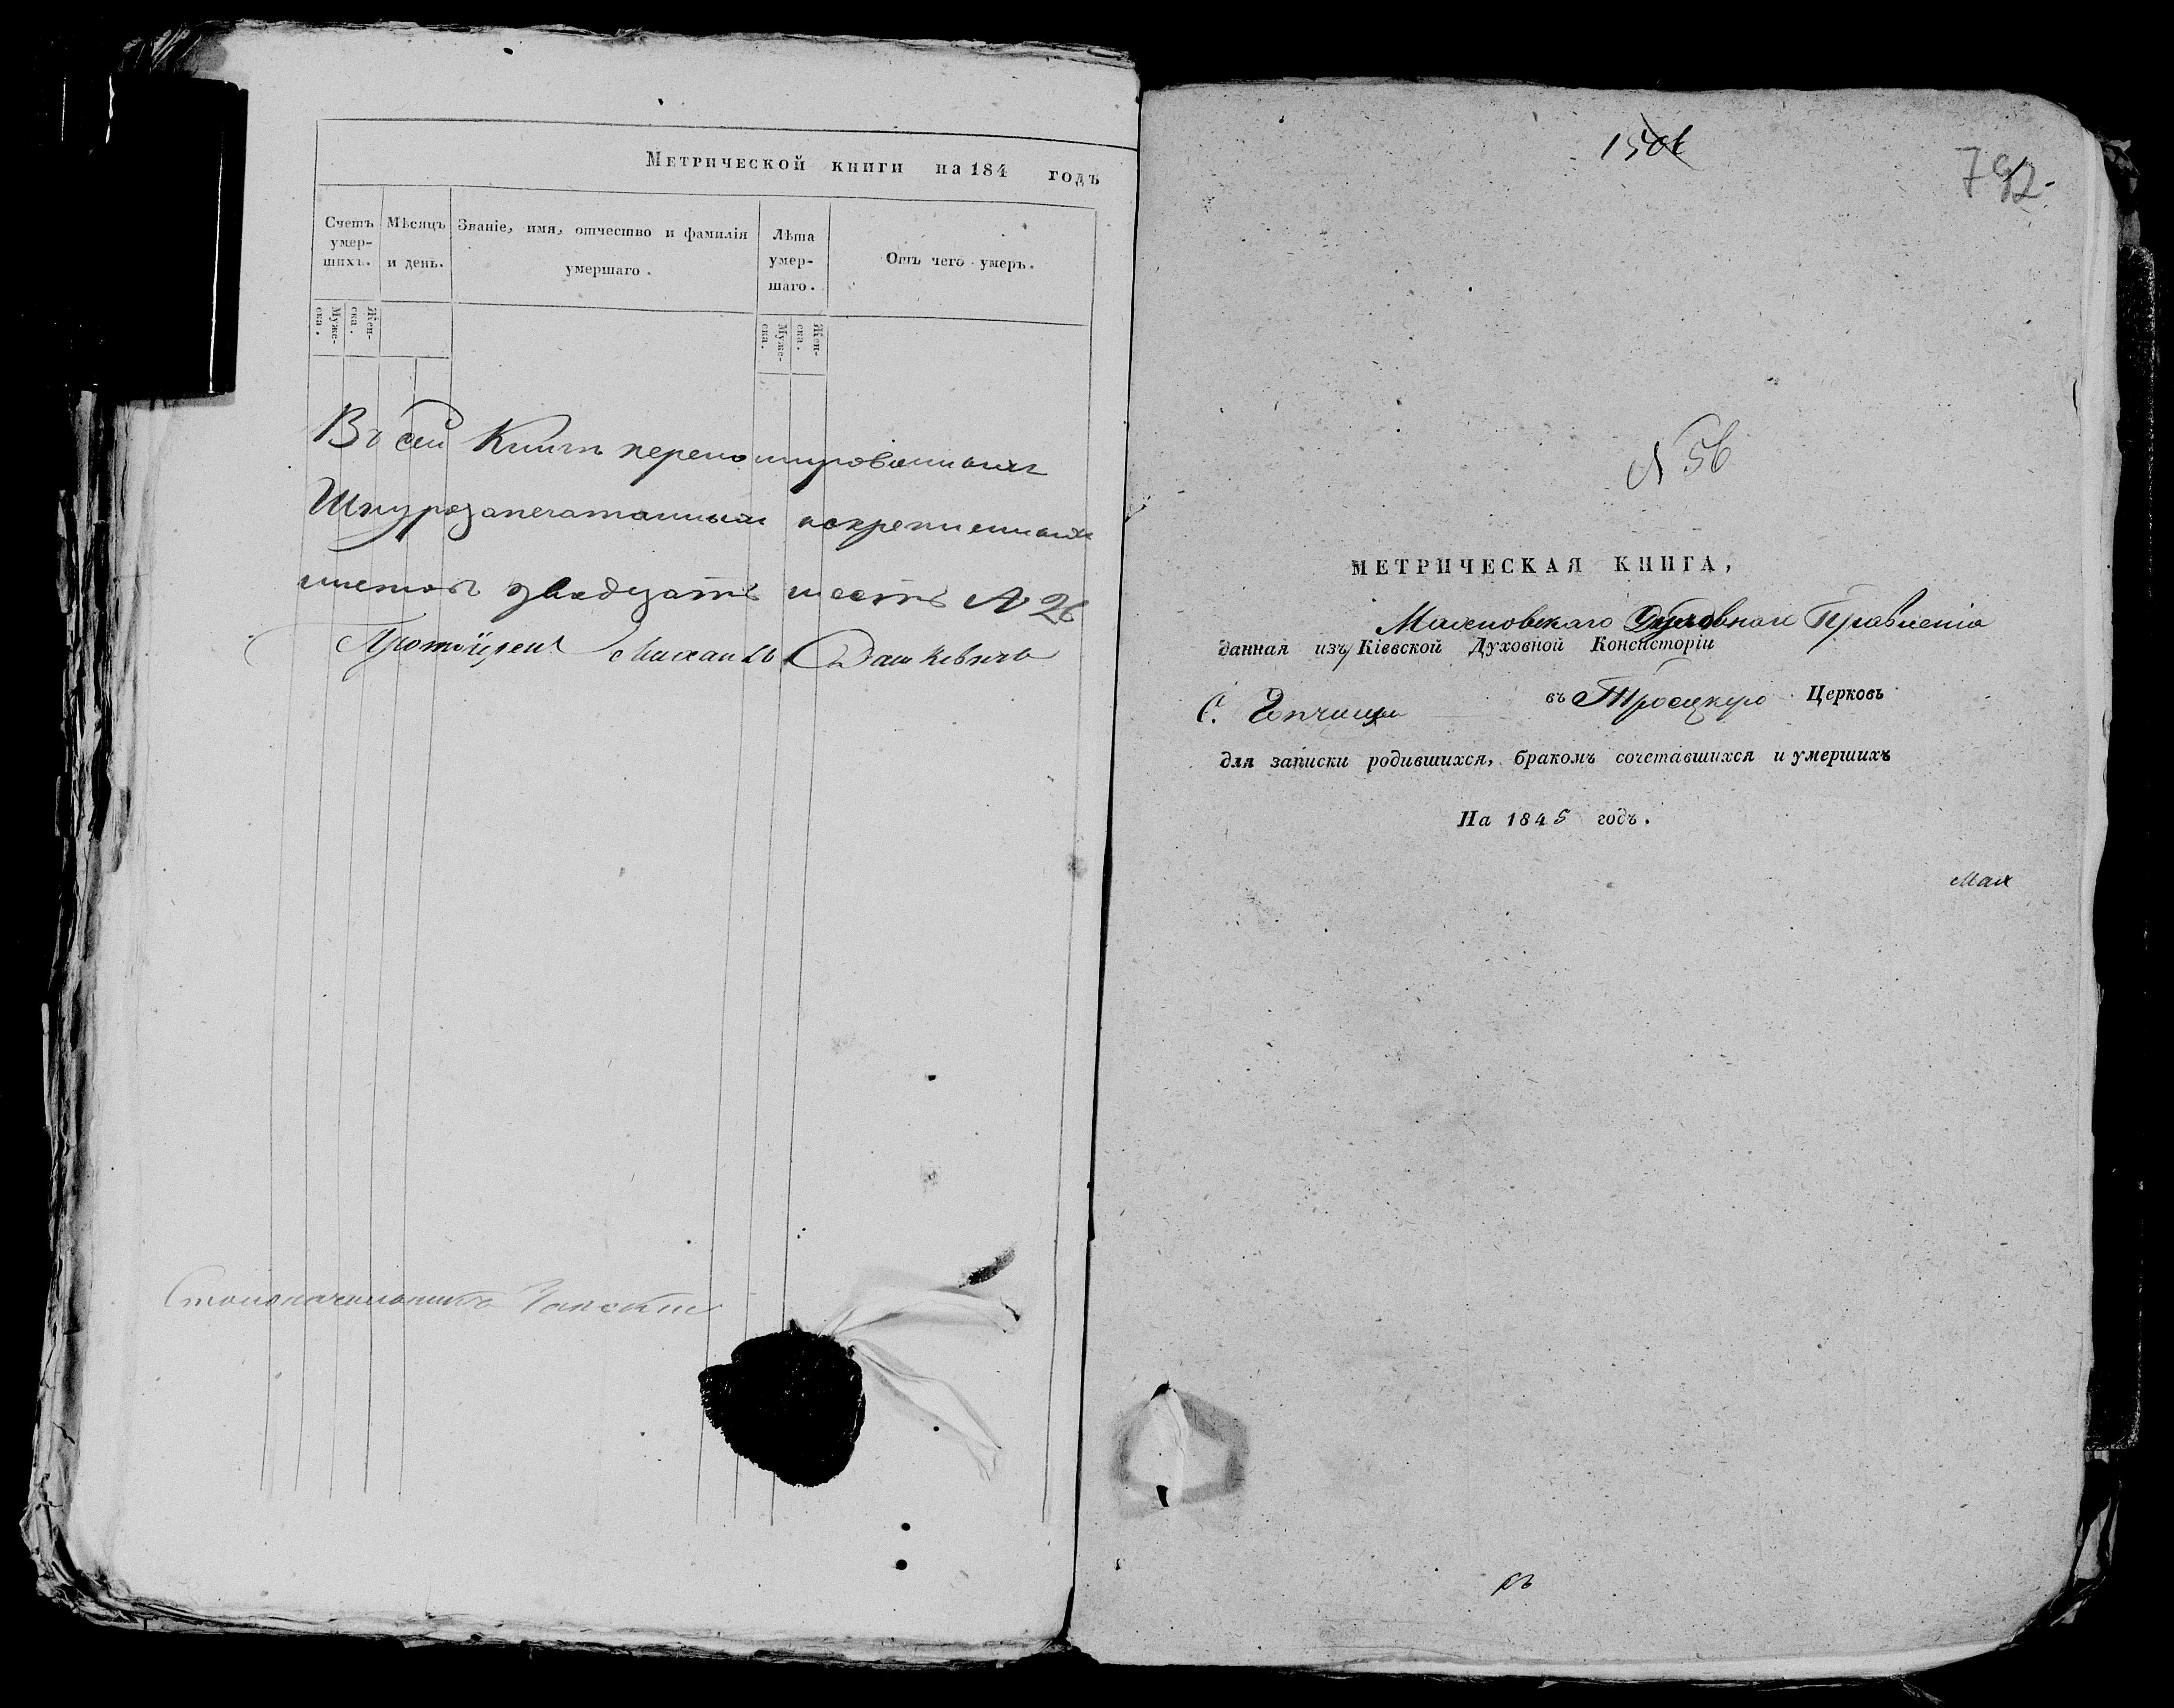 Метрической книги на 184 годъ
Счетъ умер- шихъ.
Мѣсяцъ и день.
Званіе, имя, отчество и фамилія умершаго.
Лѣта умер- шаго.
Отъ чего умеръ.
Муже- ска.
Жен- ска.
Муже- ска.
Жен- ска.
Въ сей Книгѣ перенумерованныхъ
Шнурозапечатанныхъ искрепленныхъ
листовъ двадцать шесть № 26
Протоіерей Михаилъ Дашкевичъ
Столоначальникъ
150
792
№ 56
МЕТРИЧЕСКАЯ КНИГА,
Духовнаго Правленія
данная изъ Кіевской Духовной Консисторіи
С. въ Троецкую Церковь
для записки родившихся, бракомъ сочетавшихся и умершихъ
На 1845 годъ.